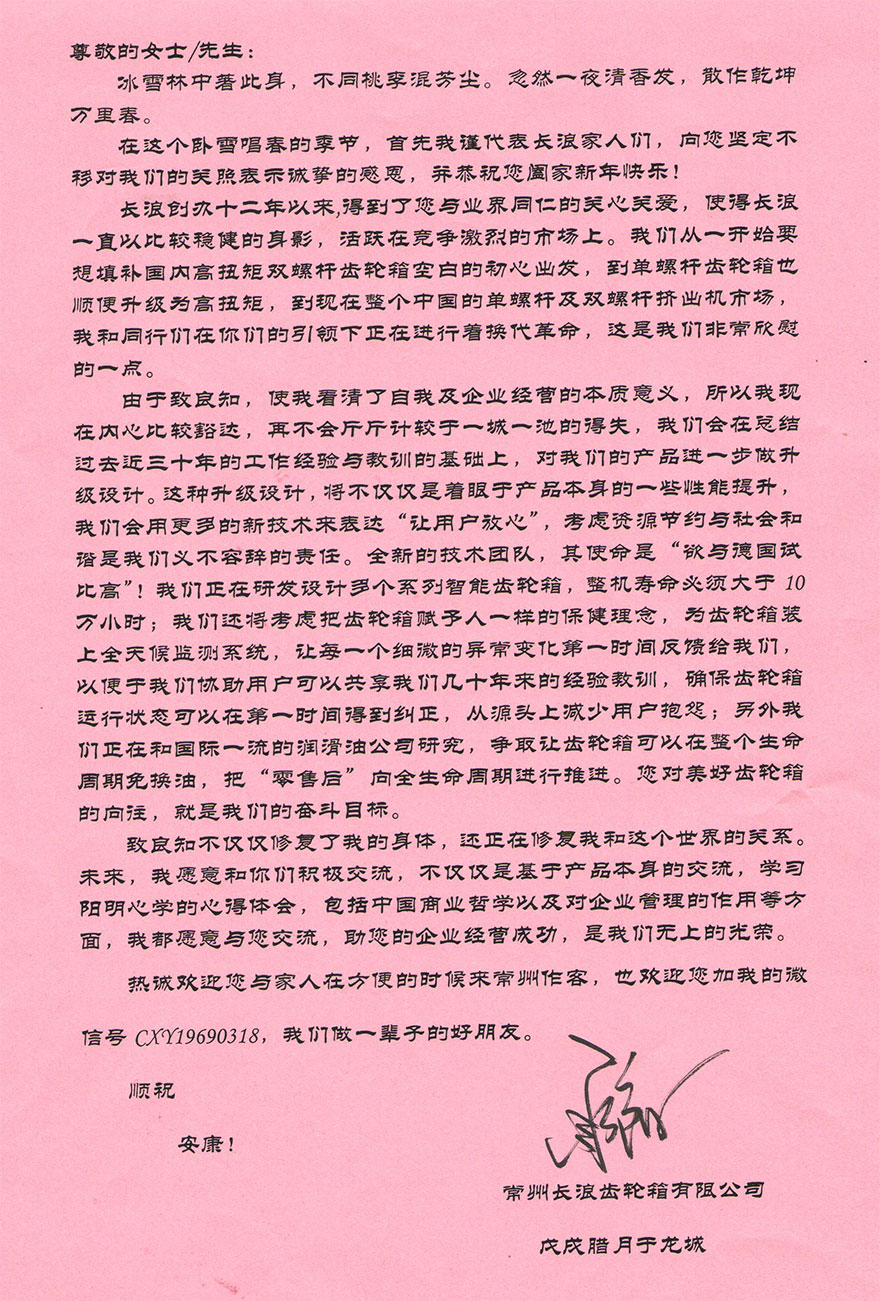 尊敬的女士/先生：
冰雪林中著此身，不同桃李混芳尘。忽然一夜清香发，散作乾坤
万里春。
在这个卧雪唱春的季节，首先我谨代表长浪家人们，向您坚定不
移对我们的关照表示诚挚的感恩，并恭祝您阖家新年快乐！
长浪创办十二年以来,得到了您与业界同仁的关心关爱，使得长浪
一直以比较稳健的身影，活跃在竞争激烈的市场上。我们从一开始要
想填补国内高扭矩双螺杆齿轮箱空白的初心出发，到单螺杆齿轮箱也
顺便升级为高扭矩，到现在整个中国的单螺杆及双螺杆挤出机市场，
我和同行们在你们的引领下正在进行着换代革命，这是我们非常欣慰
的一点。
由于致良知，使我看清了自我及企业经营的本质意义，所以我现
在内心比较豁达，再不会斤斤计较于一城一池的得失，我们会在总结
过去近三十年的工作经验与教训的基础上，对我们的产品进一步做升
级设计。这种升级设计，将不仅仅是着眼于产品本身的一些性能提升，
我们会用更多的新技术来表达“让用户放心”，考虑资源节约与社会和
谐是我们义不容辞的责任。全新的技术团队，其使命是“欲与德国试
比高”！我们正在研发设计多个系列智能齿轮箱，整机寿命必须大于 10
万小时；我们还将考虑把齿轮箱赋予人一样的保健理念，为齿轮箱装
上全天候监测系统，让每一个细微的异常变化第一时间反馈给我们，
以便于我们协助用户可以共享我们几十年来的经验教训，确保齿轮箱
运行状态可以在第一时间得到纠正，从源头上减少用户抱怨；另外我
们正在和国际一流的润滑油公司研究，争取让齿轮箱可以在整个生命
周期免换油，把“零售后”向全生命周期进行推进。您对美好齿轮箱
的向往，就是我们的奋斗目标。
致良知不仅仅修复了我的身体，还正在修复我和这个世界的关系。
未来，我愿意和你们积极交流，不仅仅是基于产品本身的交流，学习
阳明心学的心得体会，包括中国商业哲学以及对企业管理的作用等方
面，我都愿意与您交流，助您的企业经营成功，是我们无上的光荣。
热诚欢迎您与家人在方便的时候来常州作客，也欢迎您加我的微
信号 CXY19690318，我们做一辈子的好朋友。
顺祝
安康！
常州长浪齿轮箱有限公司
戊戌腊月于龙城